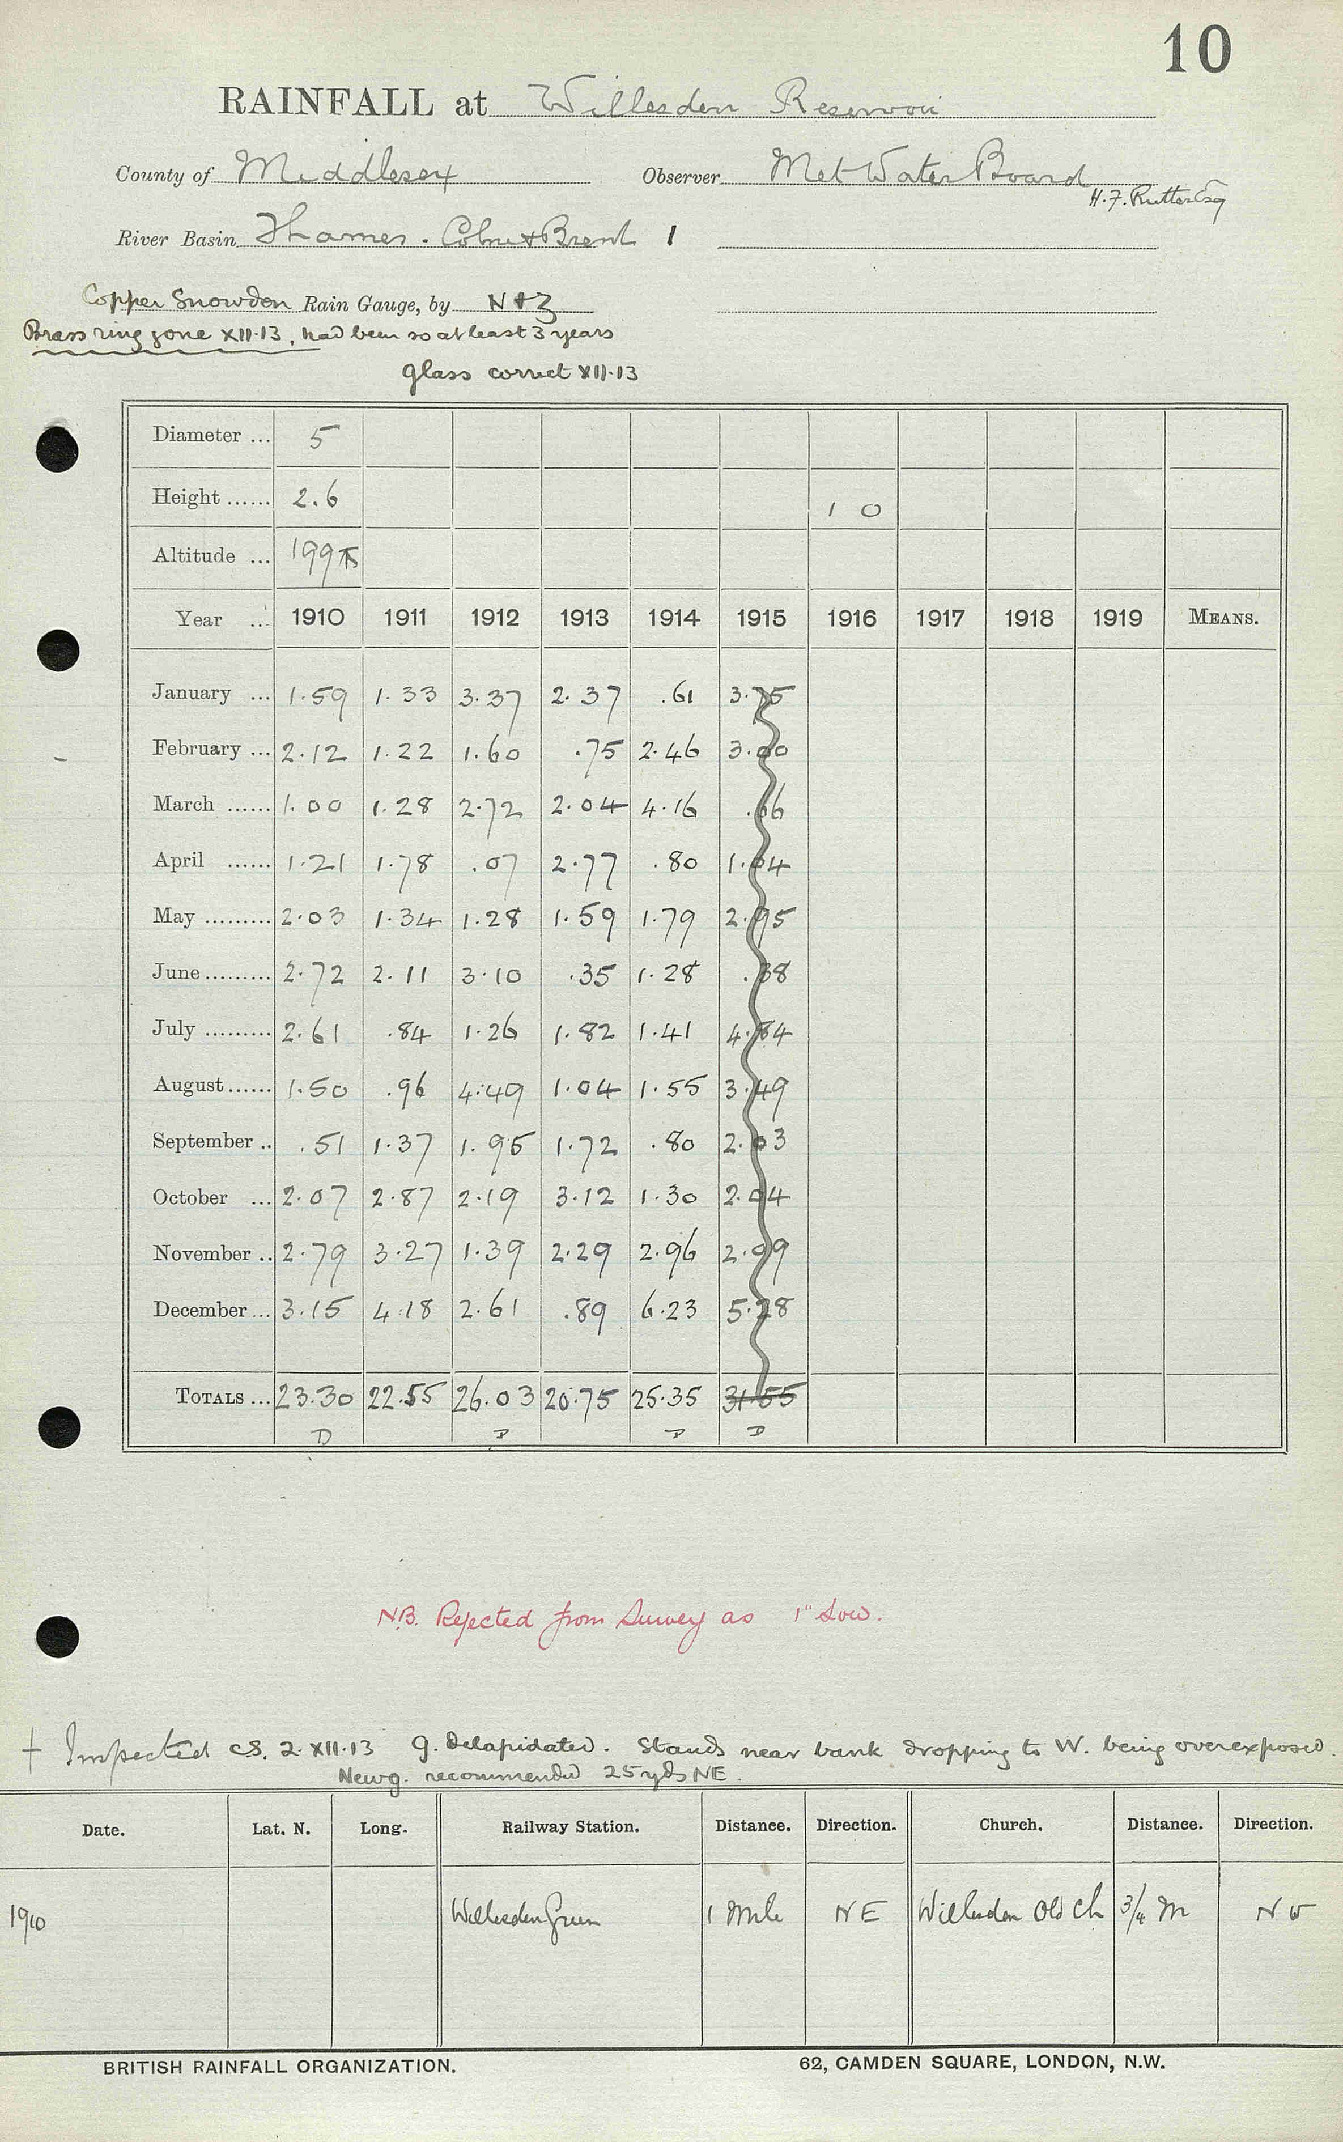 10
RAINFALL at Willesden Reservoir
County of Middlesex Observer Met Water Board
H. F. Rutter Esq
River Basin Thames. Colne & Brent 1
Copper Snowdon Rain Gauge, by N & Z
Brass ring gone XII.13, had been so at least 3 years
glass correct XII.13
Diameter ... 5
Height ...... 2.6 1 0
Altitude ... 199
Year ... 1910 1911 1912 1913 1914 1915 1916 1917 1918 1919 MEANS.
January ... 1.59 1.33 3.37 2.37 .61 3.75
February ... 2.12 1.22 1.60 .75 2.46 3.00
March ...... 1.00 1.28 2.72 2.04 4.16 .66
April ...... 1.21 1.78 .07 2.77 .80 1.04
May ......... 2.03 1.34 1.28 1.59 1.79 2.95
June ......... 2.72 2.11 3.10 .35 1.28 .38
July ......... 2.61 .84 1.26 1.82 1.41 4.84
August ...... 1.50 .96 4.49 1.04 1.55 3.49
September .. .51 1.37 1.95 1.72 .80 2.03
October ... 2.07 2.87 2.19 3.12 1.30 2.04
November .. 2.79 3.27 1.39 2.29 2.96 2.09
December ... 3.15 4.18 2.61 .89 6.23 5.28
TOTALS ... 23.30 22.55 26.03 20.75 25.35 31.55
D D D D
N.B. Rejected from Survey as 1" low.
† Inspected CS. 2.XII.13 g. delapidated. Stands near bank dropping to W. being overexposed.
New g. recommended 25 yds NE.
Date. Lat. N. Long. Railway Station. Distance. Direction. Church. Distance. Direction.
1910 Willesden Green 1 Mile NE Willesden Old Ch 3/4 m NW
BRITISH RAINFALL ORGANIZATION. 62, CAMDEN SQUARE, LONDON, N.W.